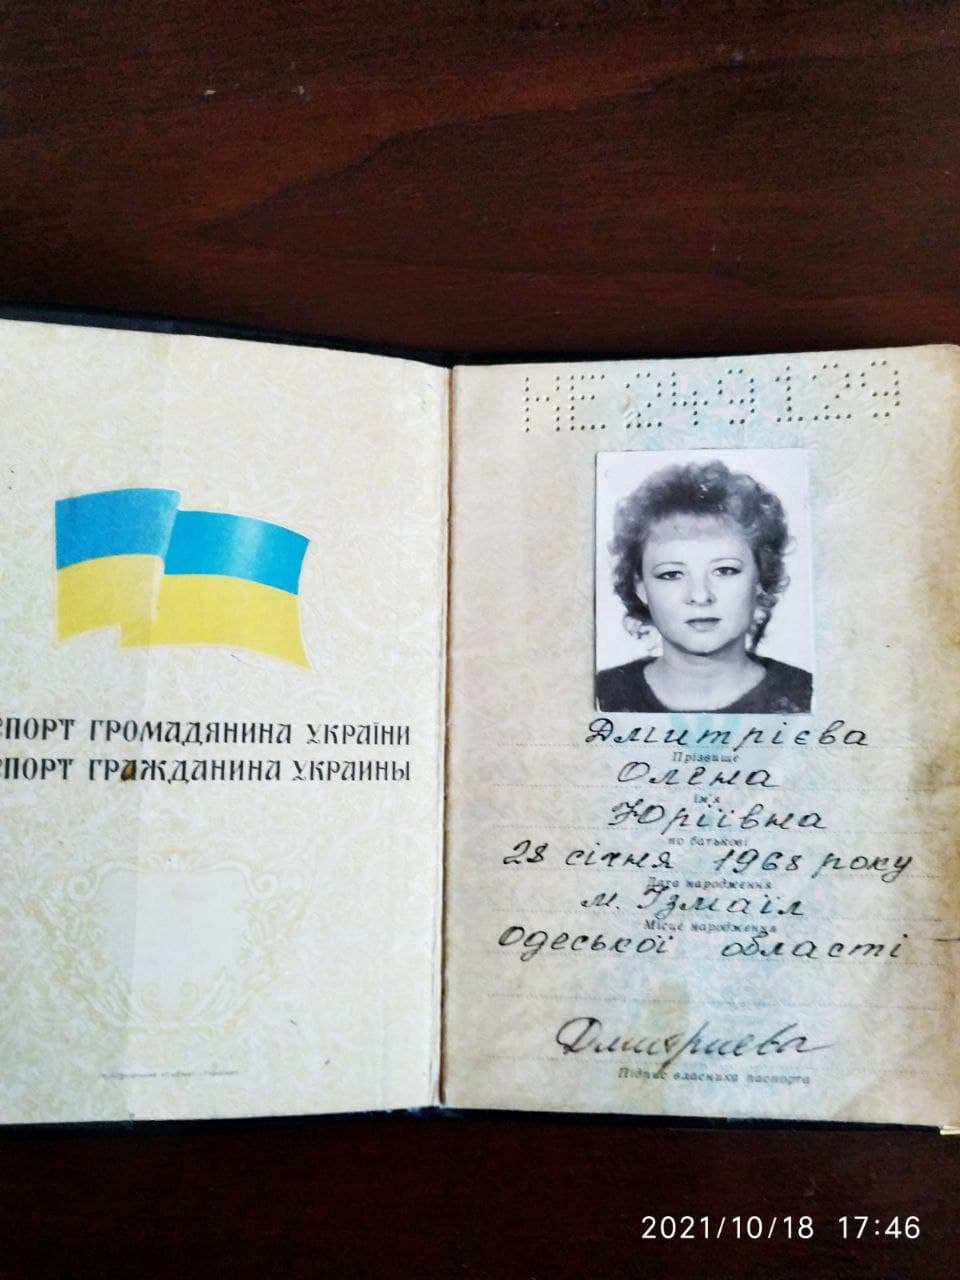 СПОРТ ГРОМАДЯНИНА УКРАЇНИ
СПОРТ ГРАЖДАНИНА УКРАИНЫ
НЕ 249129
Дмитрієва
Прізвище
Олена
Ім'я
Юріївна
по батькові
28 січня 1968 року
Дата народження
м. Ізмаїл
Місце народження
Одеської області
Дмитриева
Підпис власника паспорта
2021/10/18 17:46